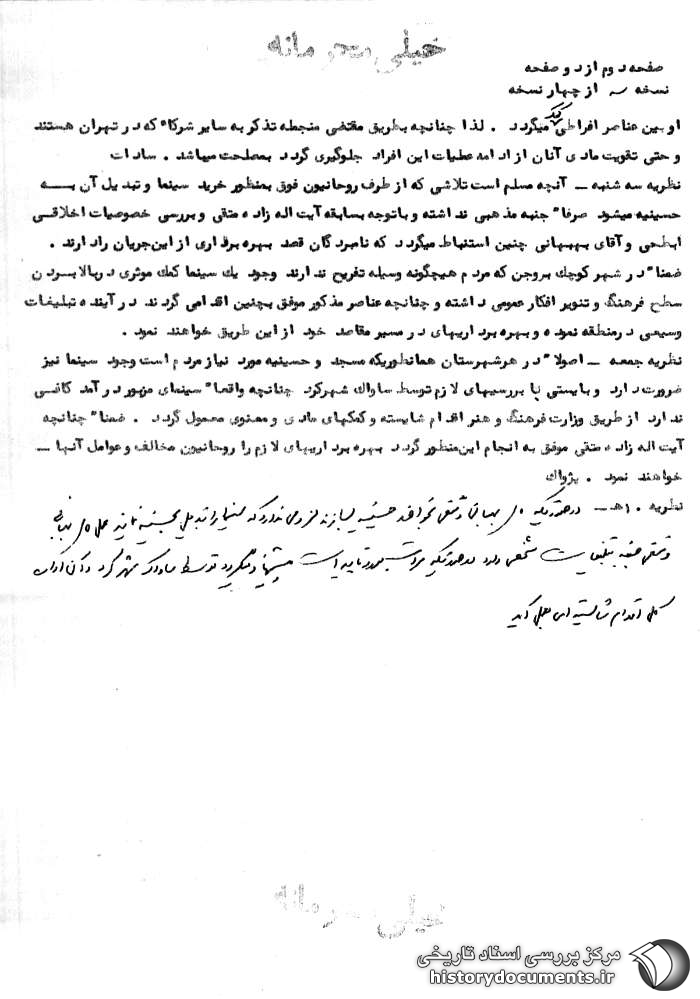 خیلی محرمانه
صفحه دوم از دو صفحه
نسخه سه از چهار نسخه
او بین عناصر افراطی پخش میگردد . لذا چنانچه بطریق مقتضی منجمله تذکر به سایر شرکا٬ که در تهران هستند
و حتی تقویت مادی آنان از ادامه عملیات این افراد جلوگیری گردد بمصلحت میباشد . سادات
نظریه سه شنبه ـ آنچه مسلم است تلاشی که از طرف روحانیون فوق بمنظور خرید سینما و تبدیل آن بــه
حسینیه میشود صرفا" جنبه مذهبی نداشته و باتوجه بسابقه آیت اله زاده متقی و بررسی خصوصیات اخلاقــی
ابطحی و آقای بهبهانی چنین استنباط میگردد که نامبردگان قصد بهره برداری از این جریان رادارند .
ضمنا" در شهر کوچك بروجن که مردم هیچگونه وسیله تفریح ندارند وجود یك سینما کمك موثری دربالا بردن
سطح فرهنگ و تنویر افکار عمومی داشته و چنانچه عناصر مذکور موفق بچنین اقدامی گردند در آینده تبلیغات
وسیعی درمنطقه نموده و بهره برداریهای در مسیر مقاصد خود از این طریق خواهند نمود .
نظریه جمعه ـ اصولا" در هر شهرستان همانطوریکه مسجد و حسینیه مورد نیاز مردم است وجود سینما نیز
ضرورت دارد و بایستی با بررسیهای لازم توسط ساواك شهرکرد چنانچه واقعا" سینمای مزبور درآمد کافــی
ندارد از طریق وزارت فرهنگ و هنر اقدام شایسته و کمکهای مادی و معنوی معمول گردد . ضمنا" چنانچه
آیت اله زاده متقی موفق به انجام این منظور گردد بهره برداریهای لازم را روحانیون مخالف و عوامل آنها ـ
خواهند نمود . پژواك
نظریه ۱۰ هـ ـ درصورتیکه بهبهانی و متقی بخواهند حسینیه بسازند لزومی ندارد که سینما را تبدیل بحسینیه نمایند عمل بهبهانی
و متقی جنبه تبلیغات شخصی دارد درصورتیکه مراتب مورد تایید است پیشنهاد میگردد توسط ساواك شهرکرد و آن اداره
کل اقدام شایسته ای بعمل آید
خیلی محرمانه
مرکز بررسی اسناد تاریخی
historydocuments.ir